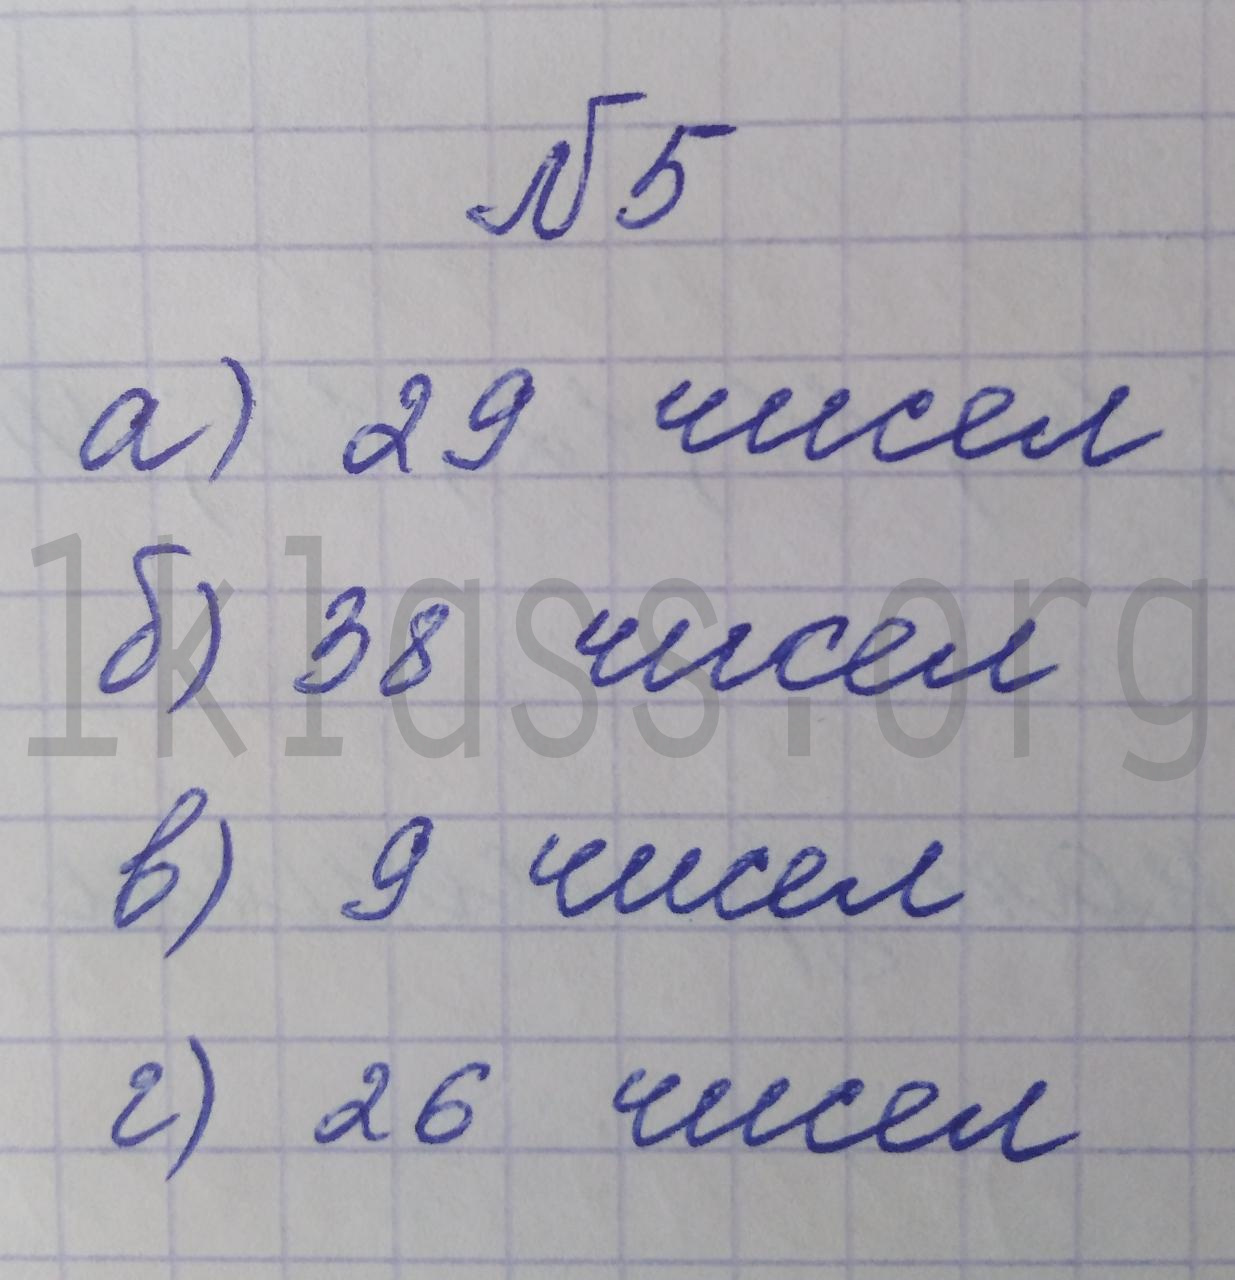 №5
а) 29 чисел
б) 38 чисел
1klass.org
в) 9 чисел
г) 26 чисел